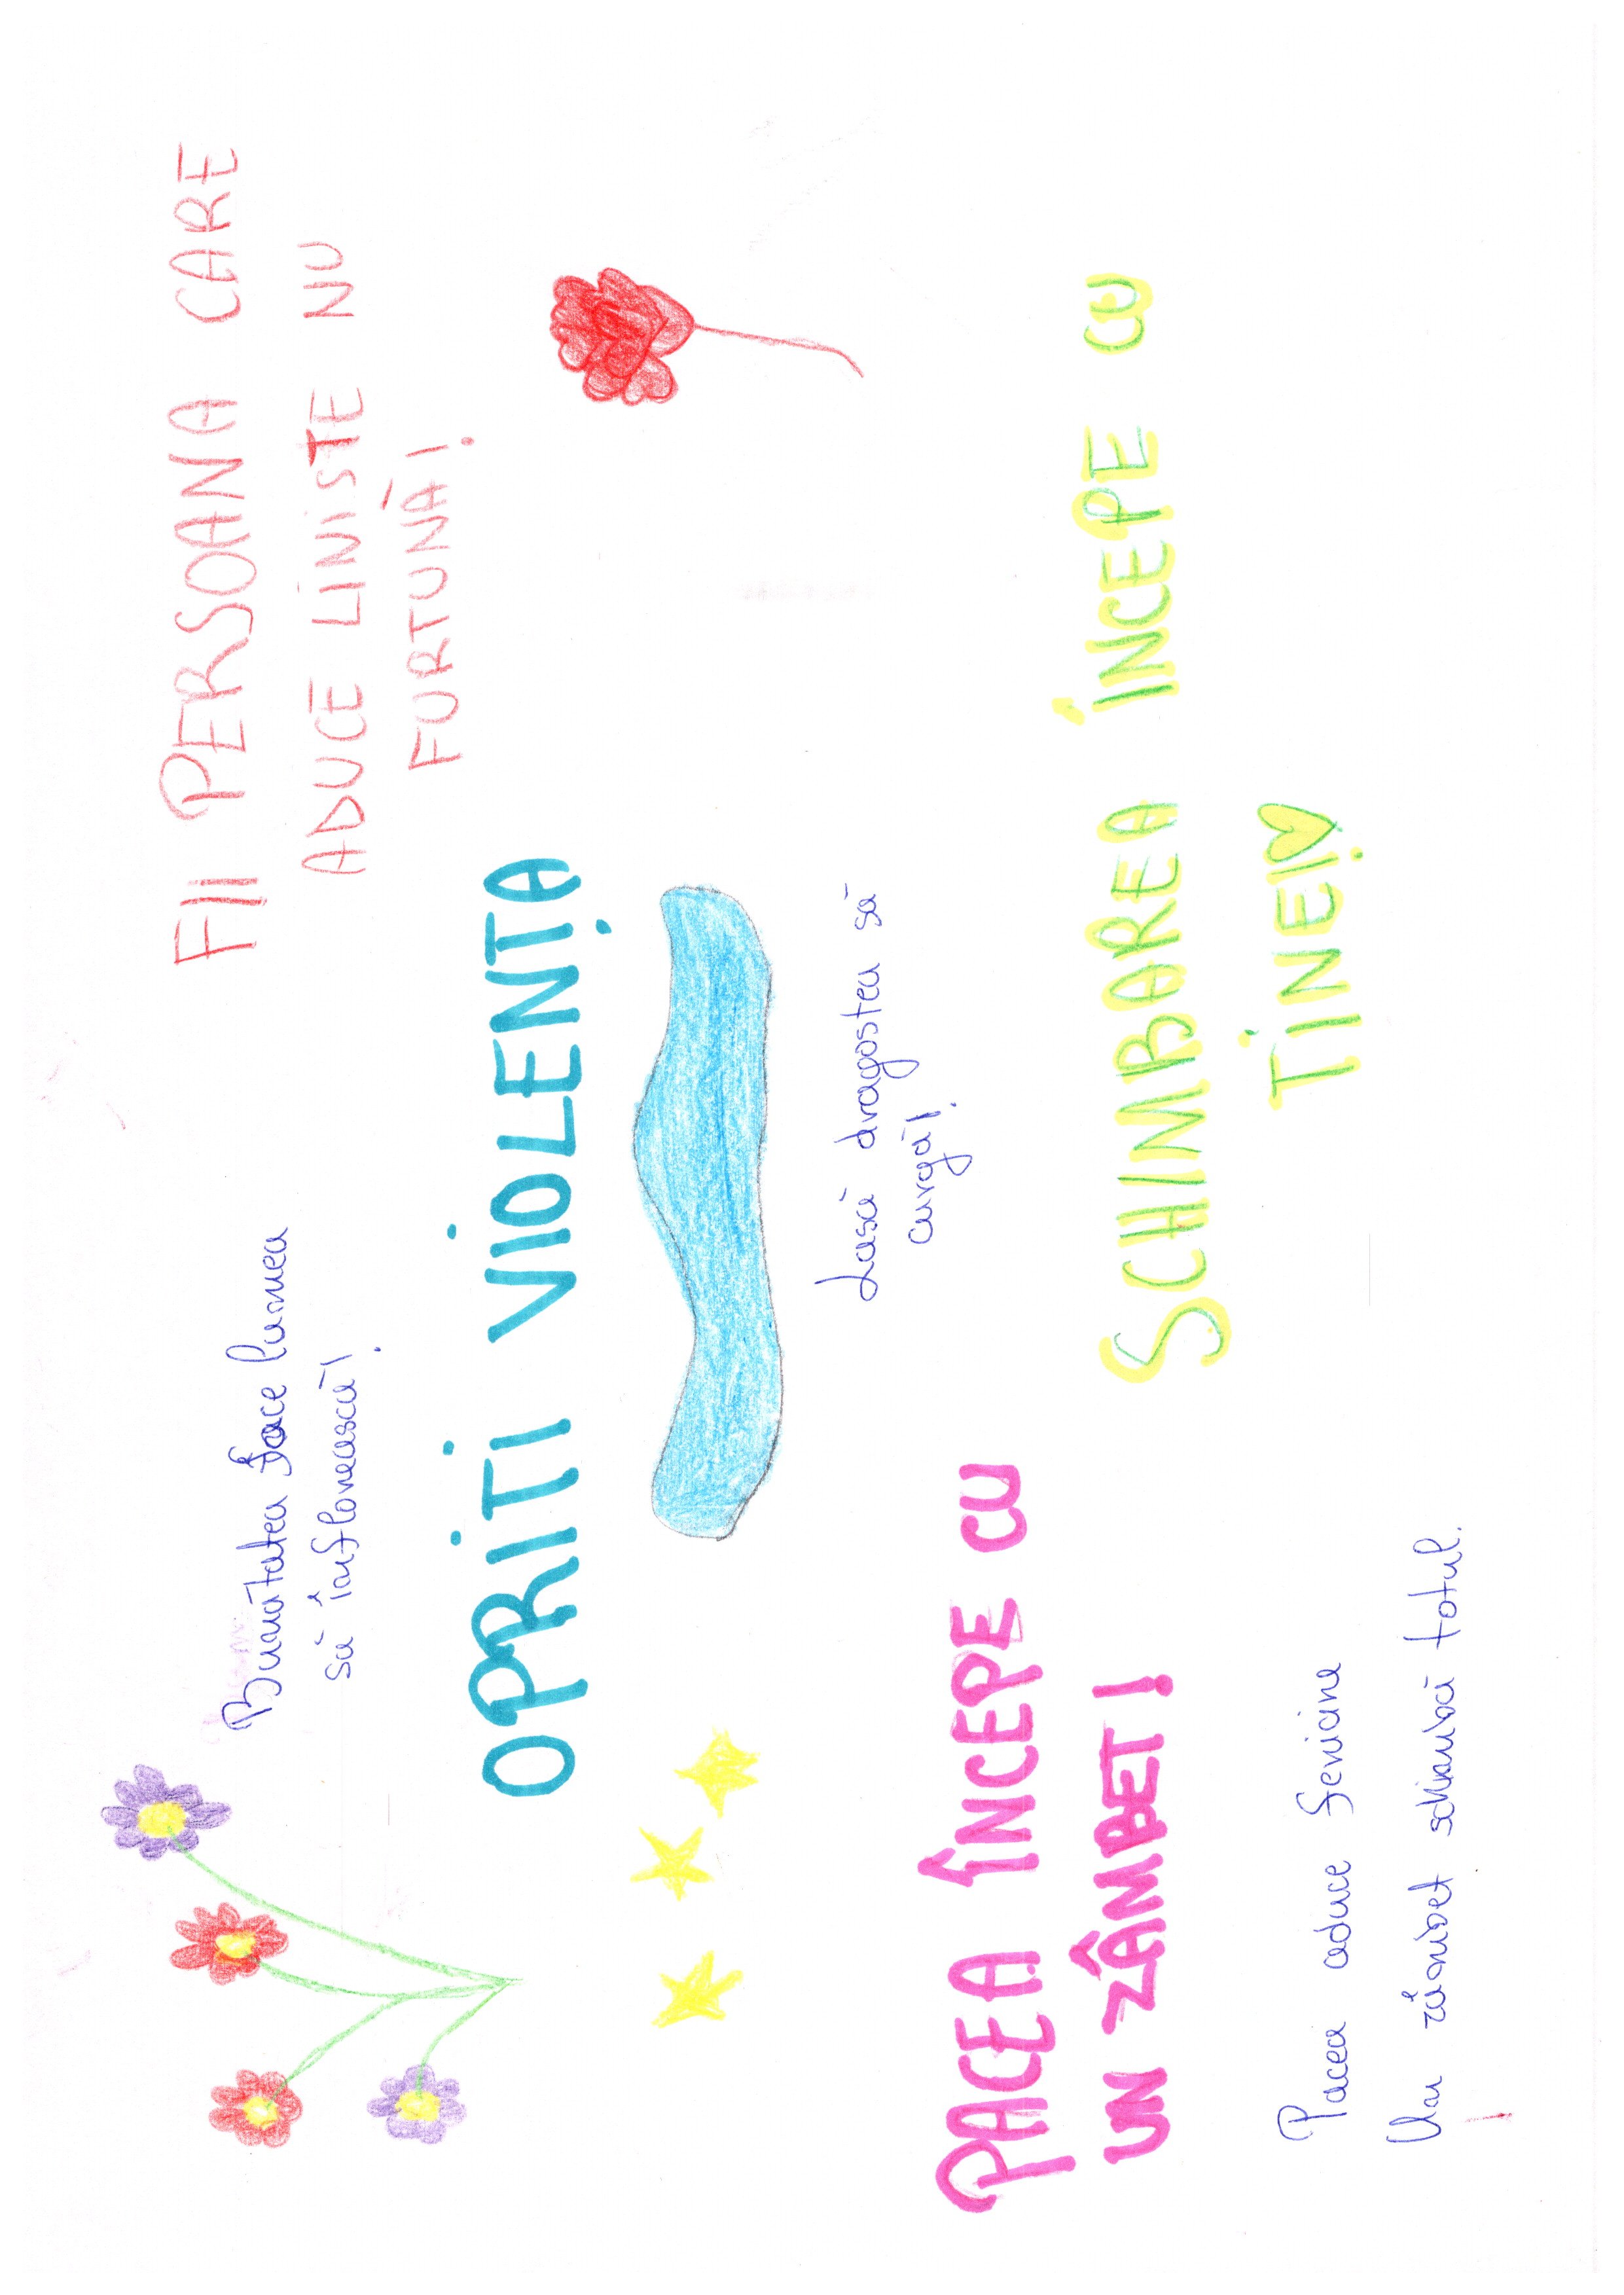 Bunătatea face lumea
să înflorească!
FII PERSOANA CARE
ADUCE LINISTE NU
FURTUNĂ!
OPRITI VIOLENȚA
Lasă dragostea să
curgă!
PACEA ÎNCEPE CU
UN ZÂMBET!
SCHIMBAREA ÎNCEPE CU
TINE!
Pacea aduce fericire
Un zâmbet schimbă totul.